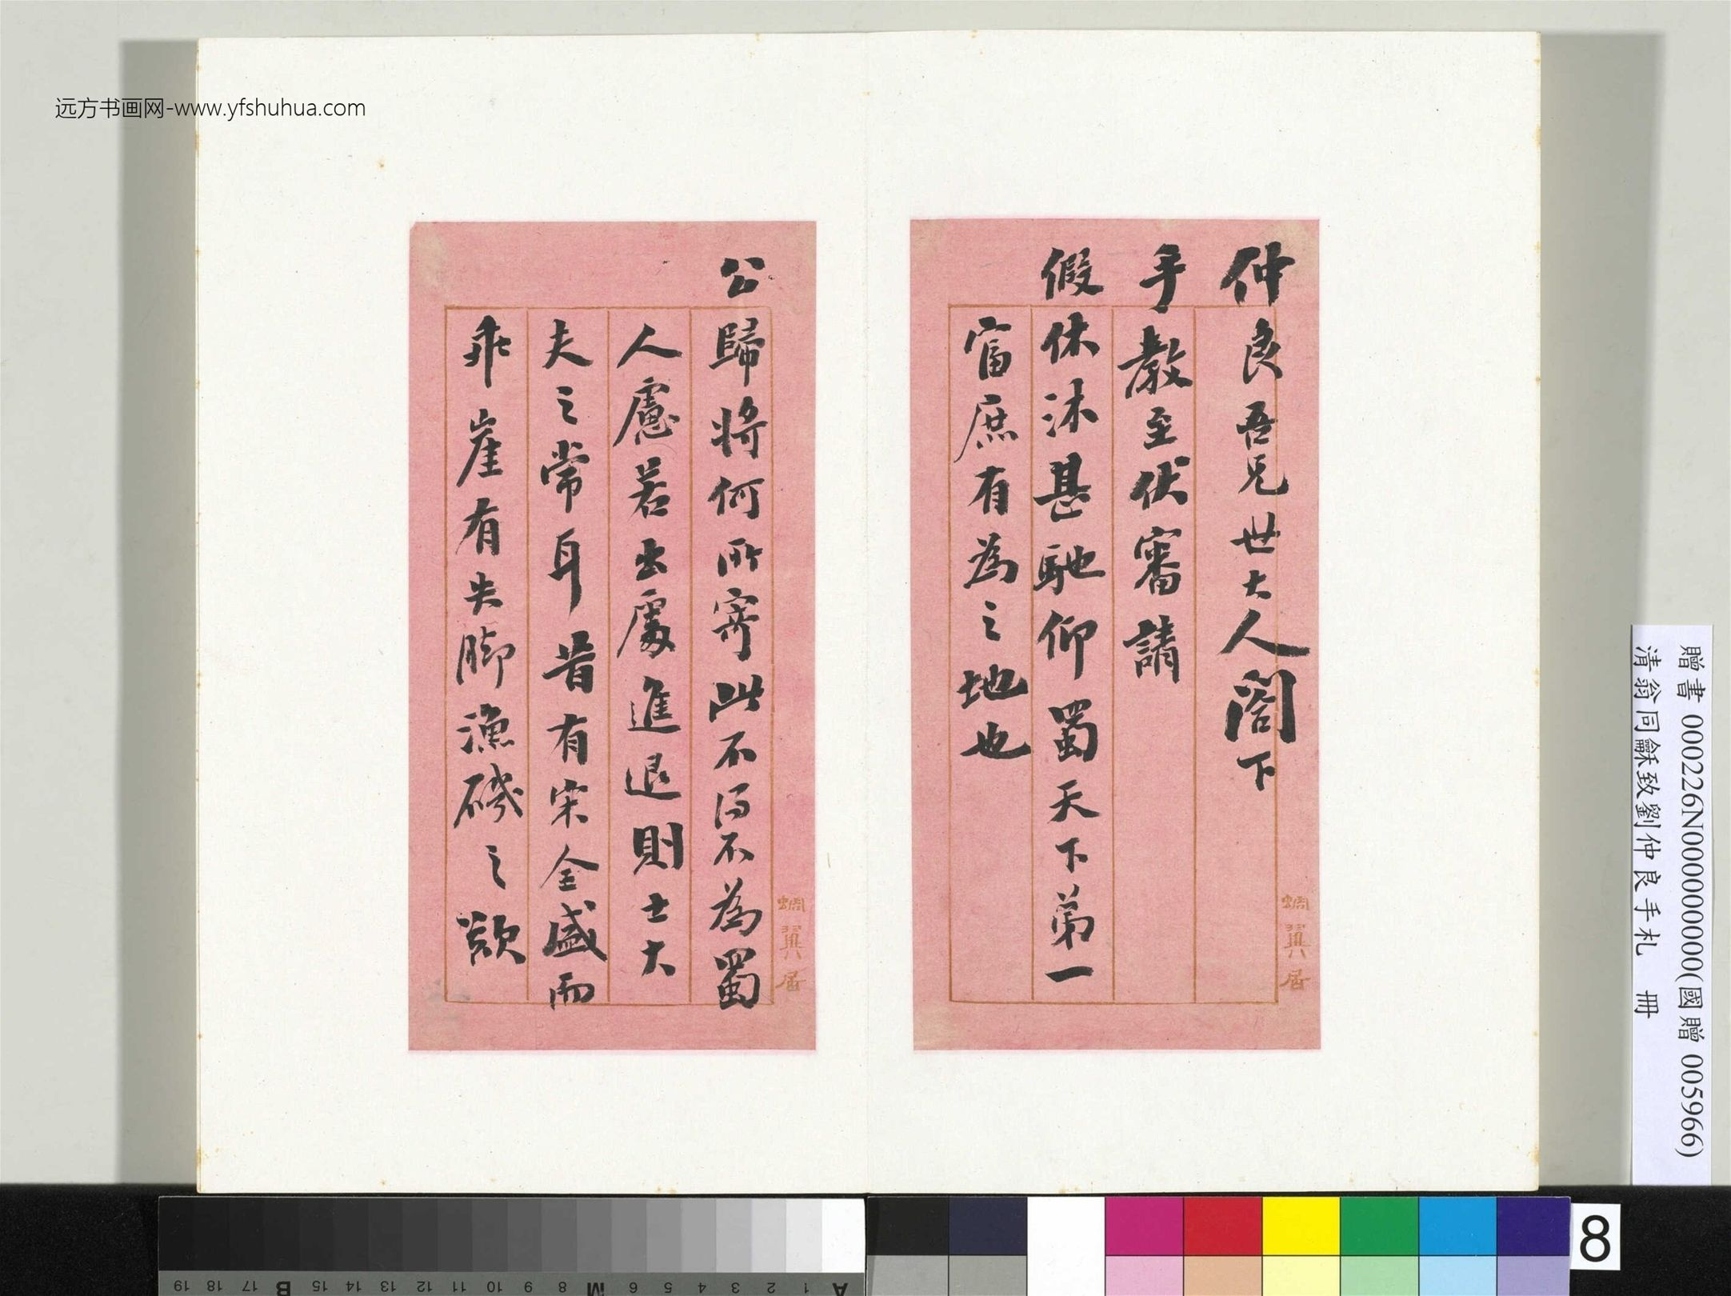 远方书画网-www.yfshuhua.com
仲良吾兄世大人閣下
手教至伏審請
假休沐甚馳仰蜀天下第一
富庶有為之地也
蜩翼居
公歸將何所寄此不得不為蜀
人慮若出處進退則士大
夫之常耳昔有宋全盛而
乖崖有失腳漁磯之歎
蜩翼居
贈書 000226N000000000(國贈 005966)
清翁同龢致劉仲良手札 冊
8
A 1 2 3 4 5 6 M 8 9 10 11 12 13 14 15 B 17 18 19